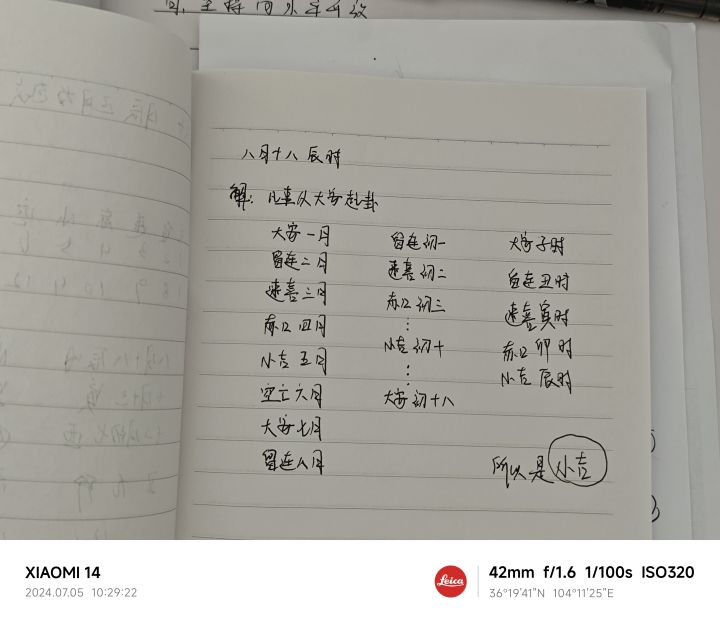 八月十八 辰时
解: 凡事从大安起卦
大安一月 留连初一 大安子时
留连二月 速喜初二 留连丑时
速喜三月 赤口初三 速喜寅时
赤口四月 ⋮ 赤口卯时
小吉五月 小吉初十 小吉辰时
空亡六月 ⋮ 大安初十八
大安七月
留连八月 所以是 小吉
XIAOMI 14
2024.07.05 10:29:22
Leica
42mm f/1.6 1/100s ISO320
36°19'41"N 104°11'25"E